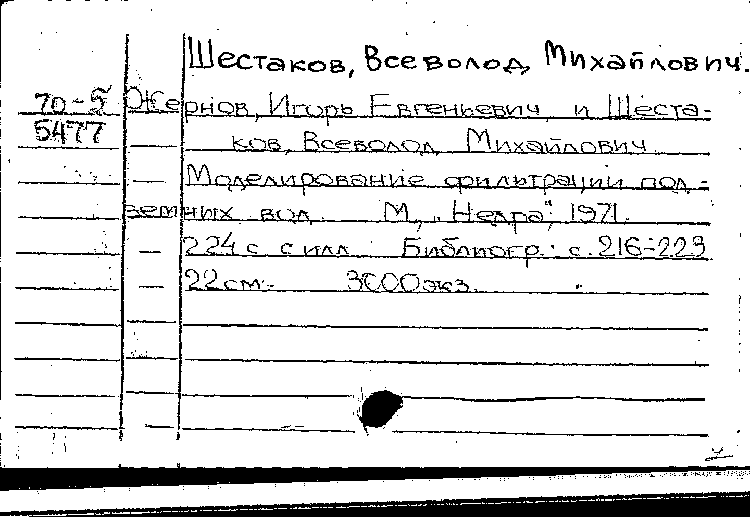 Шестаков, Всеволод Михайлович.
70-5 Жернов, Игорь Евгеньевич и Шеста-
5477 ков, Всеволод Михайлович
Моделирование фильтрации под-
земных вод. М., "Недра", 1971.
224 с с илл. Библиогр.: с. 216-223
22 см. 3000 экз.